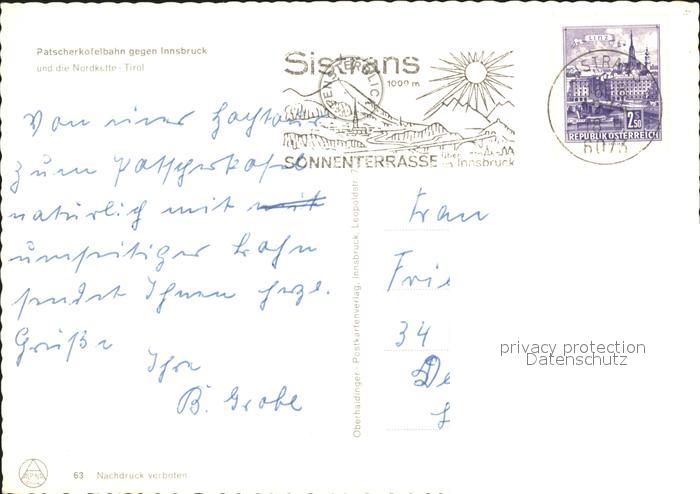 Patscherkofelbahn gegen Innsbruck
und die Nordkette - Tirol
Sistrans
1000 m
SONNENTERRASSE über Innsbruck
LINZ
2.50
REPUBLIK ÖSTERREICH
6073
Von einer Hochtour
zum Patscherkofel
natürlich mit mit
umseitiger Bahn
sendet Ihnen herzl.
Grüße
Ihre
B. Grobe
Frau
Frie
34
De
Oberhaidinger - Postkartenverlag, Innsbruck, Leopoldstr. 7
privacy protection
Datenschutz
63 Nachdruck verboten